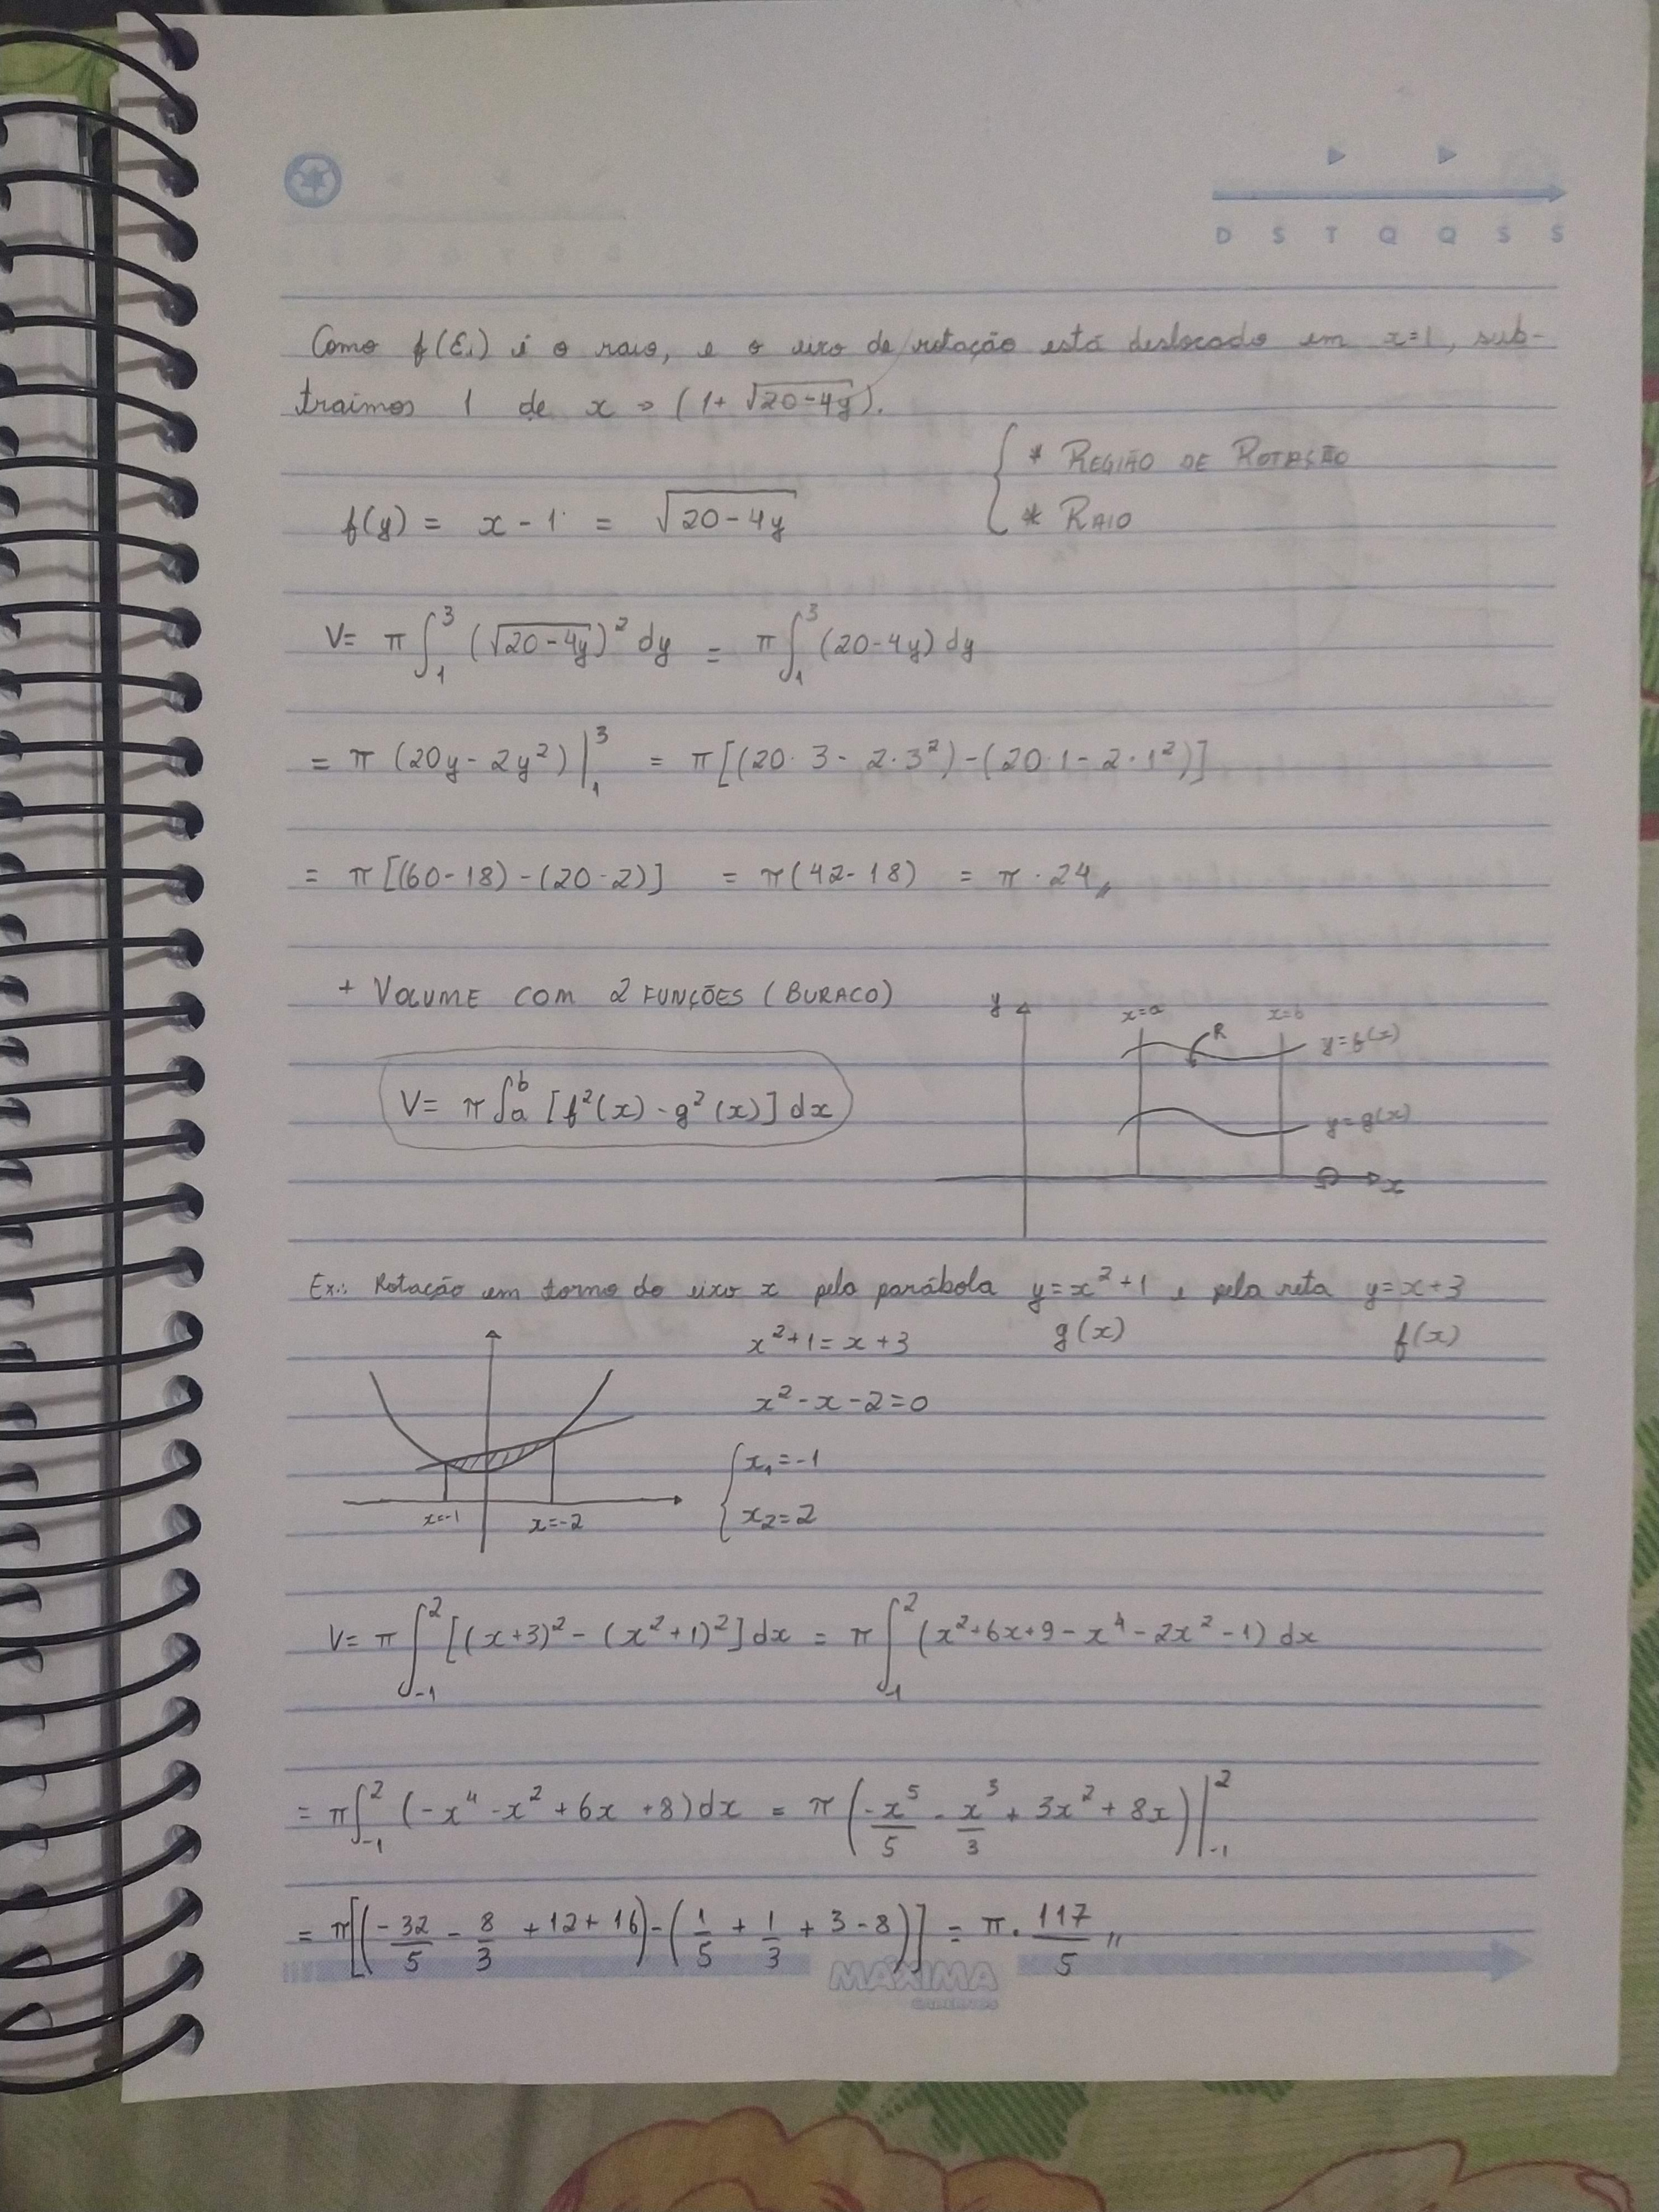 D S T Q Q S S
Como f(εi) é o raio, e o eixo de rotação está deslocado em x=1, sub-
traimos 1 de x → (1+ √(20-4y)).
* REGIÃO DE ROTAÇÃO
* RAIO
f(y) = x - 1 = √(20-4y)
V= π∫₁³ (√(20-4y))² dy = π∫₁³ (20-4y) dy
= π (20y - 2y²)|₁³ = π[(20·3 - 2·3²)-(20·1 - 2·1²)]
= π[(60-18)-(20-2)] = π(42-18) = π·24,,
+ VOLUME COM 2 FUNÇÕES (BURACO)
y x=a x=b
R y=f(x)
V= π∫ₐᵇ [f²(x) - g²(x)] dx
y=g(x)
x
Ex.: Rotação em torno do eixo x pela parábola y=x²+1 e pela reta y=x+3
x²+1=x+3 g(x) f(x)
x²-x-2=0
x₁=-1
x₂=2
x=-1 x=-2
V= π∫₋₁² [(x+3)² - (x²+1)²] dx = π∫₋₁² (x²+6x+9-x⁴-2x²-1) dx
= π∫₋₁² (-x⁴-x²+6x+8)dx = π(-x⁵/5 - x³/3 + 3x² + 8x)|₋₁²
= π[(-32/5 - 8/3 +12+16)-(1/5 + 1/3 + 3-8)] = π·117/5,,
MÁXIMA
CADERNOS